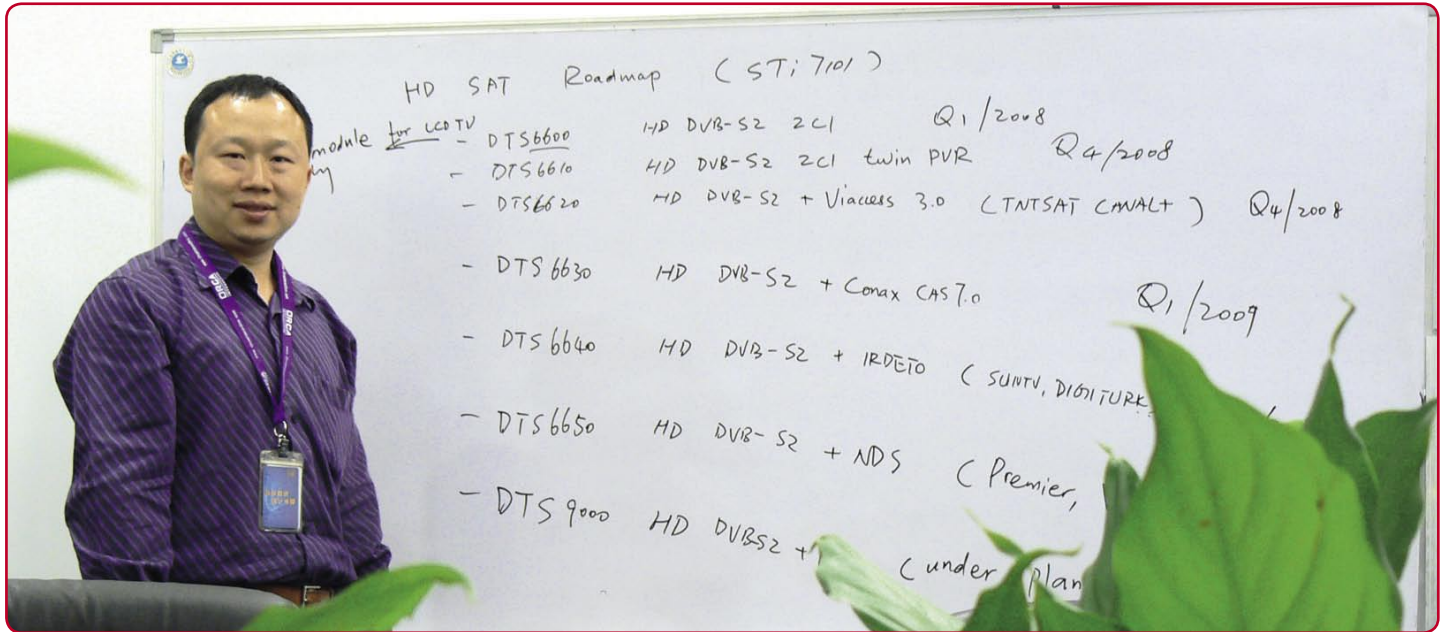 HD SAT Roadmap (STi7101)
module for LCD TV - DTS6600 HD DVB-S2 2CI Q1/2008
- DTS6610 HD DVB-S2 2CI twin PVR Q4/2008
- DTS6620 HD DVB-S2 + Viaccess 3.0 (TNTSAT CANAL+) Q4/2008
- DTS6630 HD DVB-S2 + Conax CAS7.0 Q1/2009
- DTS6640 HD DVB-S2 + IRDETO (SUNTV, DIGITURK
- DTS6650 HD DVB-S2 + NDS (Premier,
- DTS9000 HD DVBS2 + (under plan
ORCA
ORCA